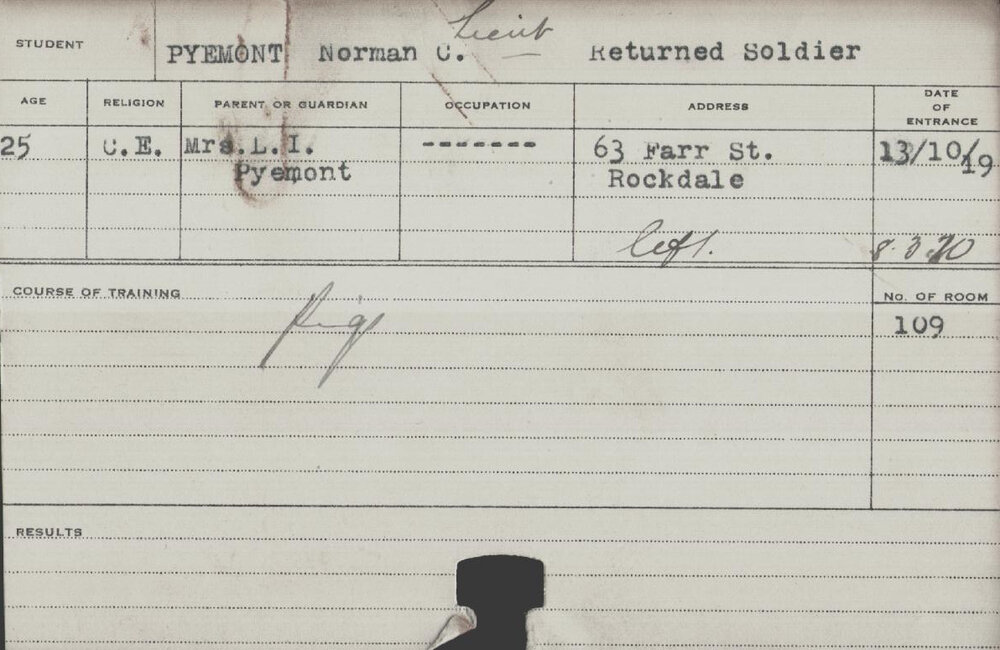 Lieut
STUDENT PYEMONT Norman C. Returned Soldier
AGE RELIGION PARENT OR GUARDIAN OCCUPATION ADDRESS DATE OF ENTRANCE
25 C.E. Mrs.L.I. ------- 63 Farr St. 13/10/19
Pyemont Rockdale
left. 8.3.20
COURSE OF TRAINING No. OF ROOM
Pigs 109
RESULTS